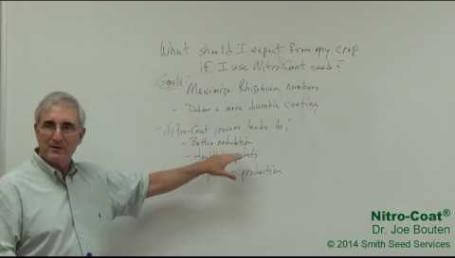 What should I expect from my crop
if I use Nitro-Coat seed?
Goals:
Maximize Rhizobium numbers
- Deliver a more durable coating
- Nitro-Coat process leads to:
- Better nodulation
-
production
Nitro-Coat®
Dr. Joe Bouten
© 2014 Smith Seed Services